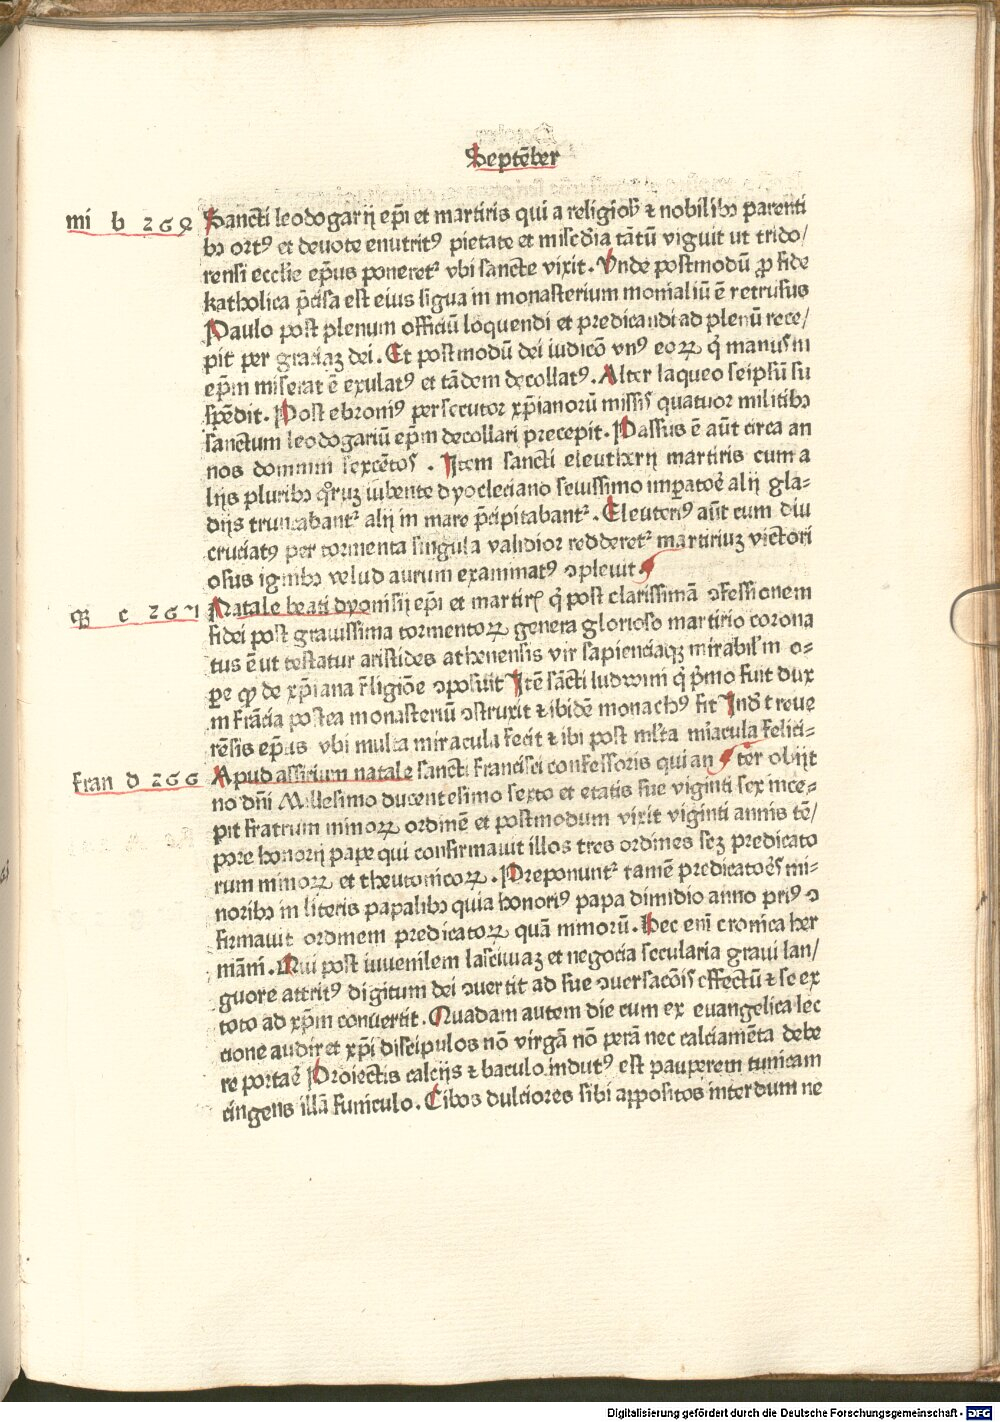 Septēber
mi b 269 Sancti leodogarij epī et martiris qui a religiosꝭ ⁊ nobilibꝫ parenti
bꝫ ortꝰ et deuote enutritꝰ pietate et misc̄dia tātū viguit ut trido/
rensi ecclie ep̄us poneretᷣ vbi sancte vixit. Vnde postmodū ꝓ fide
katholica p̄cisa est eius ligua in monasterium monialiū ē retrusus
Paulo post plenum officiū loquendi et predicandi ad plenū rece/
pit per graciaꝫ dei. Et postmodū dei iudicō vnꝰ eoꝝ q̇ manus in
ep̄m miserat ē exulatꝰ et tādem decollatꝰ. Alter laqueo seipsū su
spēdit. Post ebroniꝰ persecutor xp̄ianorū missis quatuor militibꝫ
sanctum leodogariū ep̄m decollari precepit. Passus ē aūt circa an
nos domini sexcētos. Item sancti eleutherij martiris cum a
lijs pluribꝫ qͦruꝫ iubente dyocleciano seuissimo imꝑatoe᷑ alij gla⸗
dijs truncabantᷣ alij in mare p̄cipitabantᷣ. Eleuteriꝰ aūt cum diu
cruciatꝰ per tormenta singula validior redderetᷣ martiriuꝫ victori
osus ignibꝫ velud aurum examinatꝰ ꝯpleuit
qꝫ c 2671 Natale beati dyonisij epī et martirꝭ q̇ post clarissimā ꝯfessionem
fidei post grauissima tormentoꝝ genera glorioso martirio corona
tus ē ut testatur aristides athenensis vir sapienciaqꝫ mirabilꝭ in o⸗
ꝑe qꝫ de xp̄iana r̄ligiōe ꝯposuit Itē sācti ludwini q̇ p̄mo fuit dux
in frācia postea monasteriū ꝯstruxit ⁊ ibidē monachꝰ fit Indꝭ treue
rēsis ep̄us vbi multa miracula fecit ⁊ ibi post ml̄ta mīacula felici⸗
ter obijt
fran d 266 Apud assirium natale sancti francisci confessoris qui an
no dn̄i Millesimo ducentesimo sexto et etatis sue viginti sex ince⸗
pit fratrum minoꝝ ordinē et postmodum vixit viginti annis tē/
pore honorij pape qui confirmauit illos tres ordines scꝫ predicato
rum minoꝝ et theutonicoꝝ. Preponuntᷣ tamē predicatoe᷑s mi⸗
noribꝫ in literis papalibꝫ quia honoriꝰ papa dimidio anno priꝰ ꝯ
firmauit ordinem predicatoꝝ quā minorū. Hec enī cronica her
māni. Qui post iuuenilem lasciuiaꝫ et negocia secularia graui lan/
guore attritꝰ digitum dei ꝯuertit ad sue ꝯuersacōis effectū ⁊ se ex
toto ad xp̄m conuertit. Quadam autem die cum ex euangelica lec
cione audiret xp̄i discipulos nō virgā nō perā nec calciamēta debe
re portae᷑ Proiectis calcijs ⁊ baculo indutꝰ est pauperem tunicam
cingens illā funiculo. Cibos dulciores sibi appositos interdum ne
Digitalisierung gefördert durch die Deutsche Forschungsgemeinschaft - DFG